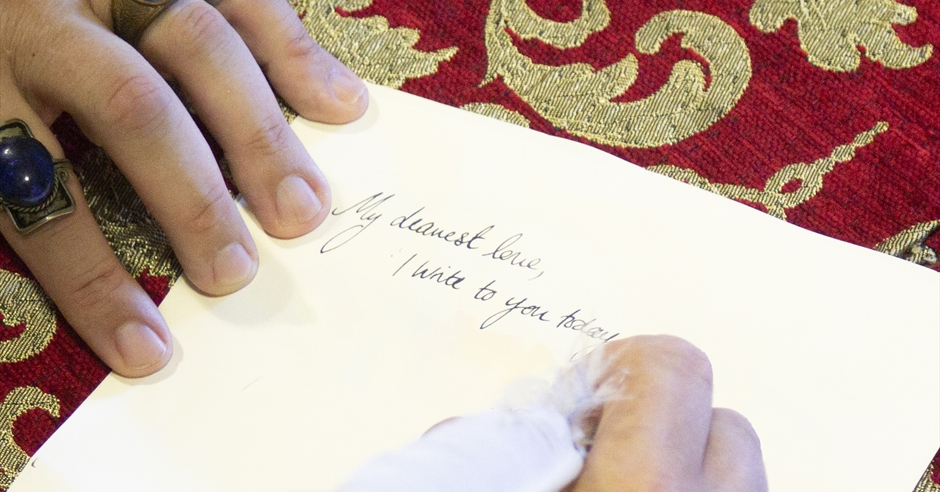 My dearest love,
I write to you today